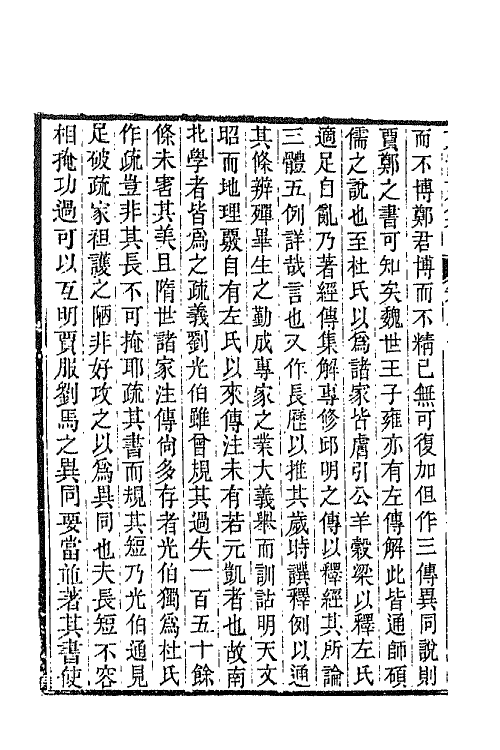 而不博鄭君博而不精已無可復加但作三傳異同說則
賈鄭之書可知矣魏世王子雍亦有左傳解此皆通師碩
儒之說也至杜氏以為諸家皆膚引公羊穀梁以釋左氏
適足自亂乃著經傳集解專修邱明之傳以釋經其所論
三體五例詳哉言也又作長歷以推其歲時譔釋例以通
其條辨殫畢生之勤成專家之業大義舉而訓詁明天文
昭而地理覈自有左氏以來傳注未有若元凱者也故南
北學者皆為之疏義劉光伯雖曾規其過失一百五十餘
條未害其美且隋世諸家注傳尙多存者光伯獨為杜氏
作疏豈非其長不可掩耶疏其書而規其短乃光伯通見
足破疏家袒護之陋非好攻之以為異同也夫長短不容
相掩功過可以互明賈服劉馬之異同要當並著其書使